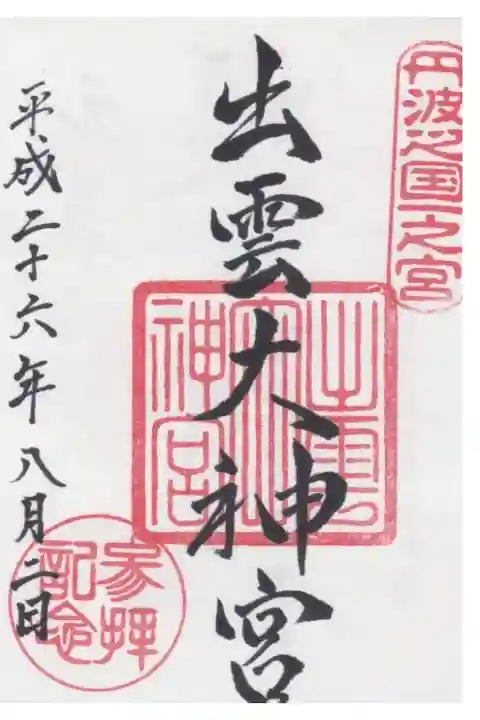 丹波之国一之宮
出雲大神宮
出雲大神宮
平成二十六年八月二日
参拝記念